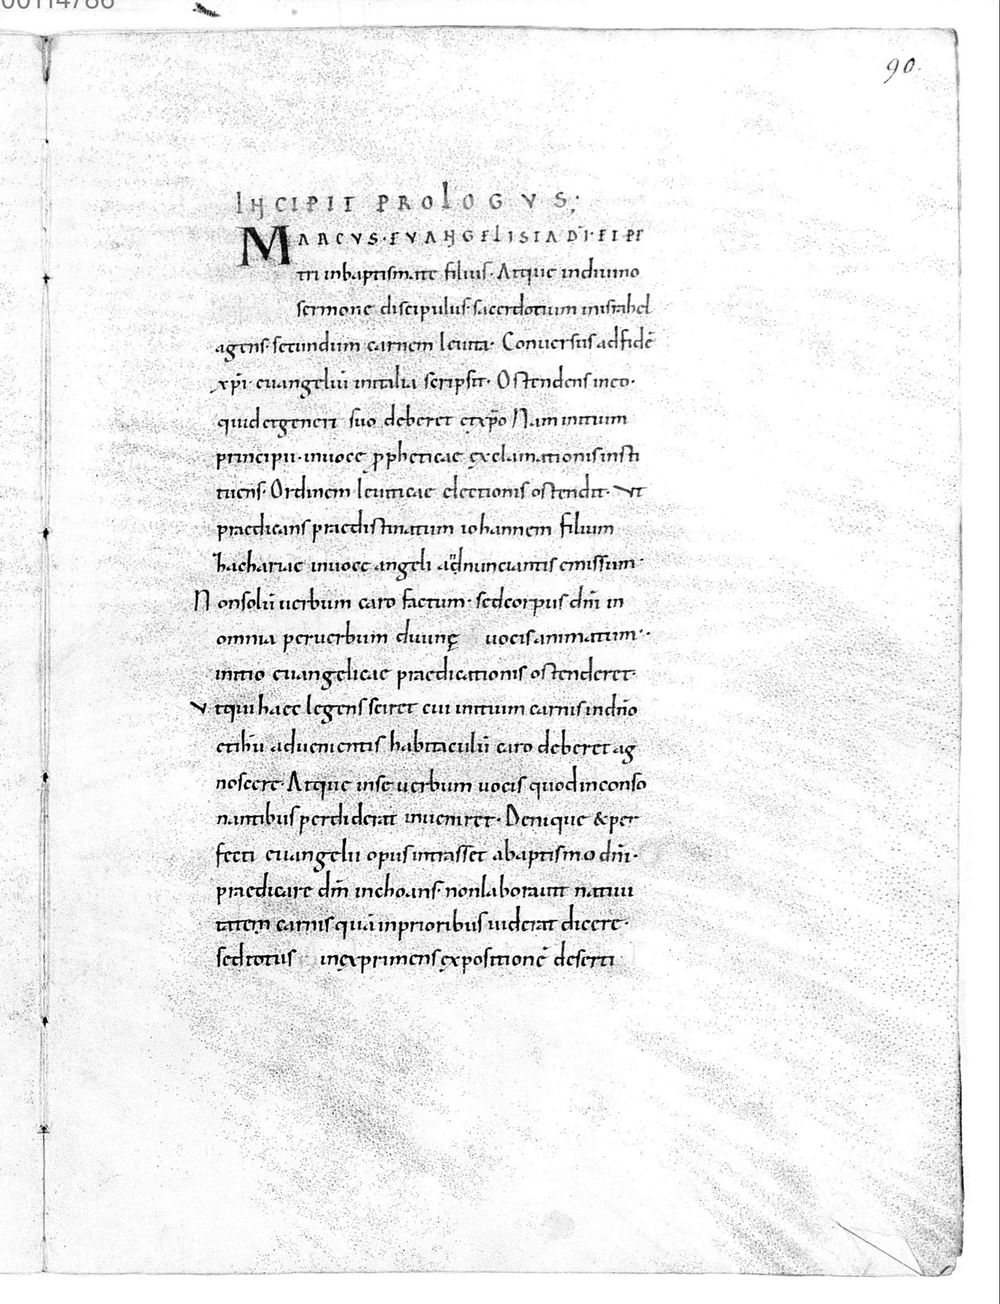 00114786
90.
INCIPIT PROLOGVS;
MARCVS·EVANGELISTA DI· ET PE
tri inbaptismate filius· Atque indiuino
sermone discipulus· sacerdotium inisrahel
agens· secundum carnem leuita· Conuersus adfidē
xp̄i· euangeliū initalia scripsit· Ostendens ineo·
quid etgeneri suo deberet etxp̄o Nam initium
principii· inuoce ꝓpheticae ęxclamationis insti
tuens· Ordinem leuiticae electionis ostendit· Vt
praedicans praedistinatum iohannem filium
hachariae inuoce angeli adnunciantis emissum·
Nonsolū uerbum caro factum· sedcorpus dn̄i in
omnia peruerbum diuinę uocis animatum·
initio euangelicae praedicationis ostenderet·
Vtqui haec legens sciret cui initium carnis indn̄o
etih̄u aduenientis habitaculū caro deberet ag
noscere· Atque inse uerbum uocis quod inconso
nantibus perdiderat inueniret· Denique &per
fecti euangelii opus intrasset abaptismo dn̄i·
praedicare dm̄ inchoans· nonlaborauit natiui
tatem carnis quā inprioribus uiderat dicere·
sedtotus inęxprimens ęxpositionē deserti